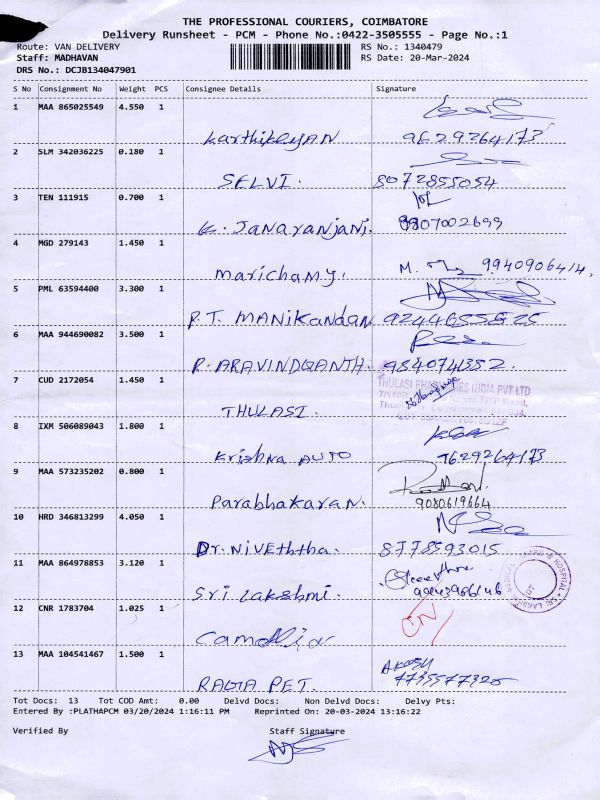 THE PROFESSIONAL COURIERS, COIMBATORE
Delivery Runsheet - PCM - Phone No.:0422-3505555 - Page No.:1
Route: VAN DELIVERY RS No.: 1340479
Staff: MADHAVAN RS Date: 20-Mar-2024
DRS No.: DCJB134047901
S No Consignment No Weight PCS Consignee Details Signature
1 MAA 865025549 4.550 1
Karthikeyan 9629264173
2 SLM 342036225 0.180 1
SELVI. 8072855054
3 TEN 111915 0.700 1
K. JANARANJANI. 9807002699
4 MGD 279143 1.450 1
Marichamy. M. 9940906414,
5 PML 63594400 3.300 1
P.T. MANIKANDAN
6 MAA 944690082 3.500 1
R. ARAVINDQANTH. 9840741352.
7 CUD 2172054 1.450 1
THULASI. THULASI PHARMACIES INDIA PVT LTD
8 IXM 506089043 1.800 1
Krishna AUTO 9629264173
9 MAA 573235202 0.800 1
Parabhakaran. 9080619664
10 HRD 346813299 4.050 1
Dr. Niveththa. 8778593015
11 MAA 864978853 3.120 1
Sri Lakshmi.
12 CNR 1783704 1.025 1
CN
13 MAA 104541467 1.500 1
PET. AKASH
Tot Docs: 13 Tot COD Amt: 0.00 Delvd Docs: Non Delvd Docs: Delvy Pts:
Entered By :PLATHAPCM 03/20/2024 1:16:11 PM Reprinted On: 20-03-2024 13:16:22
Verified By Staff Signature